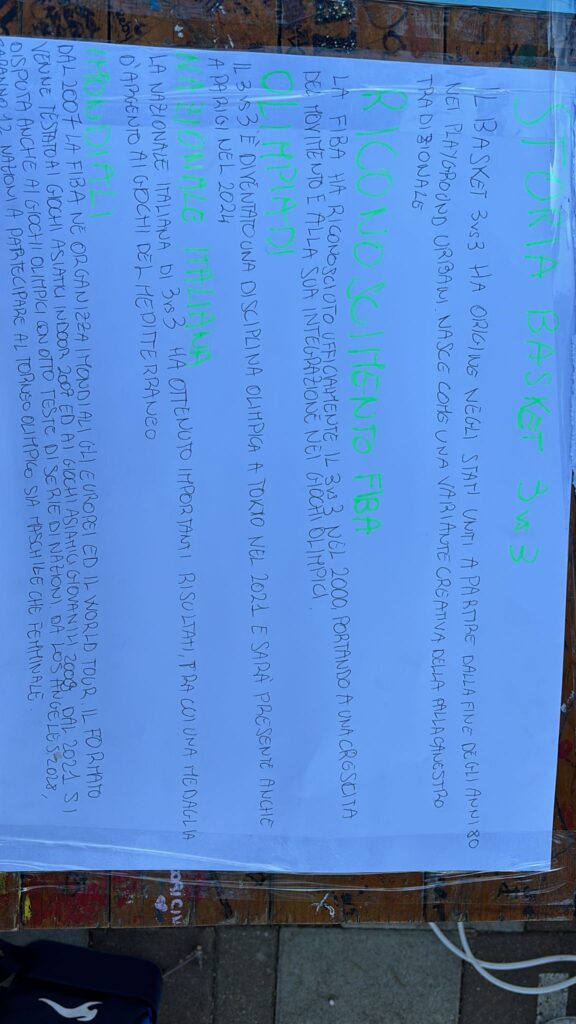 STORIA BASKET 3vs3
IL BASKET 3vs3 HA ORIGINE NEGLI STATI UNITI A PARTIRE DALLA FINE DEGLI ANNI 80
NEI PLAYGROUND URBANI. NASCE COME UNA VARIANTE CREATIVA DELLA PALLACANESTRO
TRADIZIONALE
RICONOSCIMENTO FIBA
LA FIBA HA RICONOSCIUTO UFFICIALMENTE IL 3vs3 NEL 2000, PORTANDO A UNA CRESCITA
DEL MOVIMENTO E ALLA SUA INTEGRAZIONE NEI GIOCHI OLIMPICI.
OLIMPIADI
IL 3vs3 È DIVENTATO UNA DISCIPLINA OLIMPICA A TOKYO NEL 2021 E SARÀ PRESENTE ANCHE
A PARIGI NEL 2024
NAZIONALE ITALIANA
LA NAZIONALE ITALIANA DI 3vs3 HA OTTENUTO IMPORTANTI RISULTATI, TRA CUI UNA MEDAGLIA
D'ARGENTO AI GIOCHI DEL MEDITERRANEO
I MONDIALI
DAL 2007 LA FIBA NE ORGANIZZA I MONDIALI GLI EUROPEI ED IL WORLD TOUR IL FORMATO
VENNE TESTATO AI GIOCHI ASIATICI INDOOR 2007 ED AI GIOCHI ASIATICI GIOVANILI 2009, DAL 2021 SI
DISPUTA ANCHE AI GIOCHI OLIMPICI CON OTTO TESTE DI SERIE DI NAZIONI. DA LOS ANGELES 2028,
SARANNO 12 NAZIONI A PARTECIPARE AL TORNEO OLIMPICO SIA MASCHILE CHE FEMMINILE.